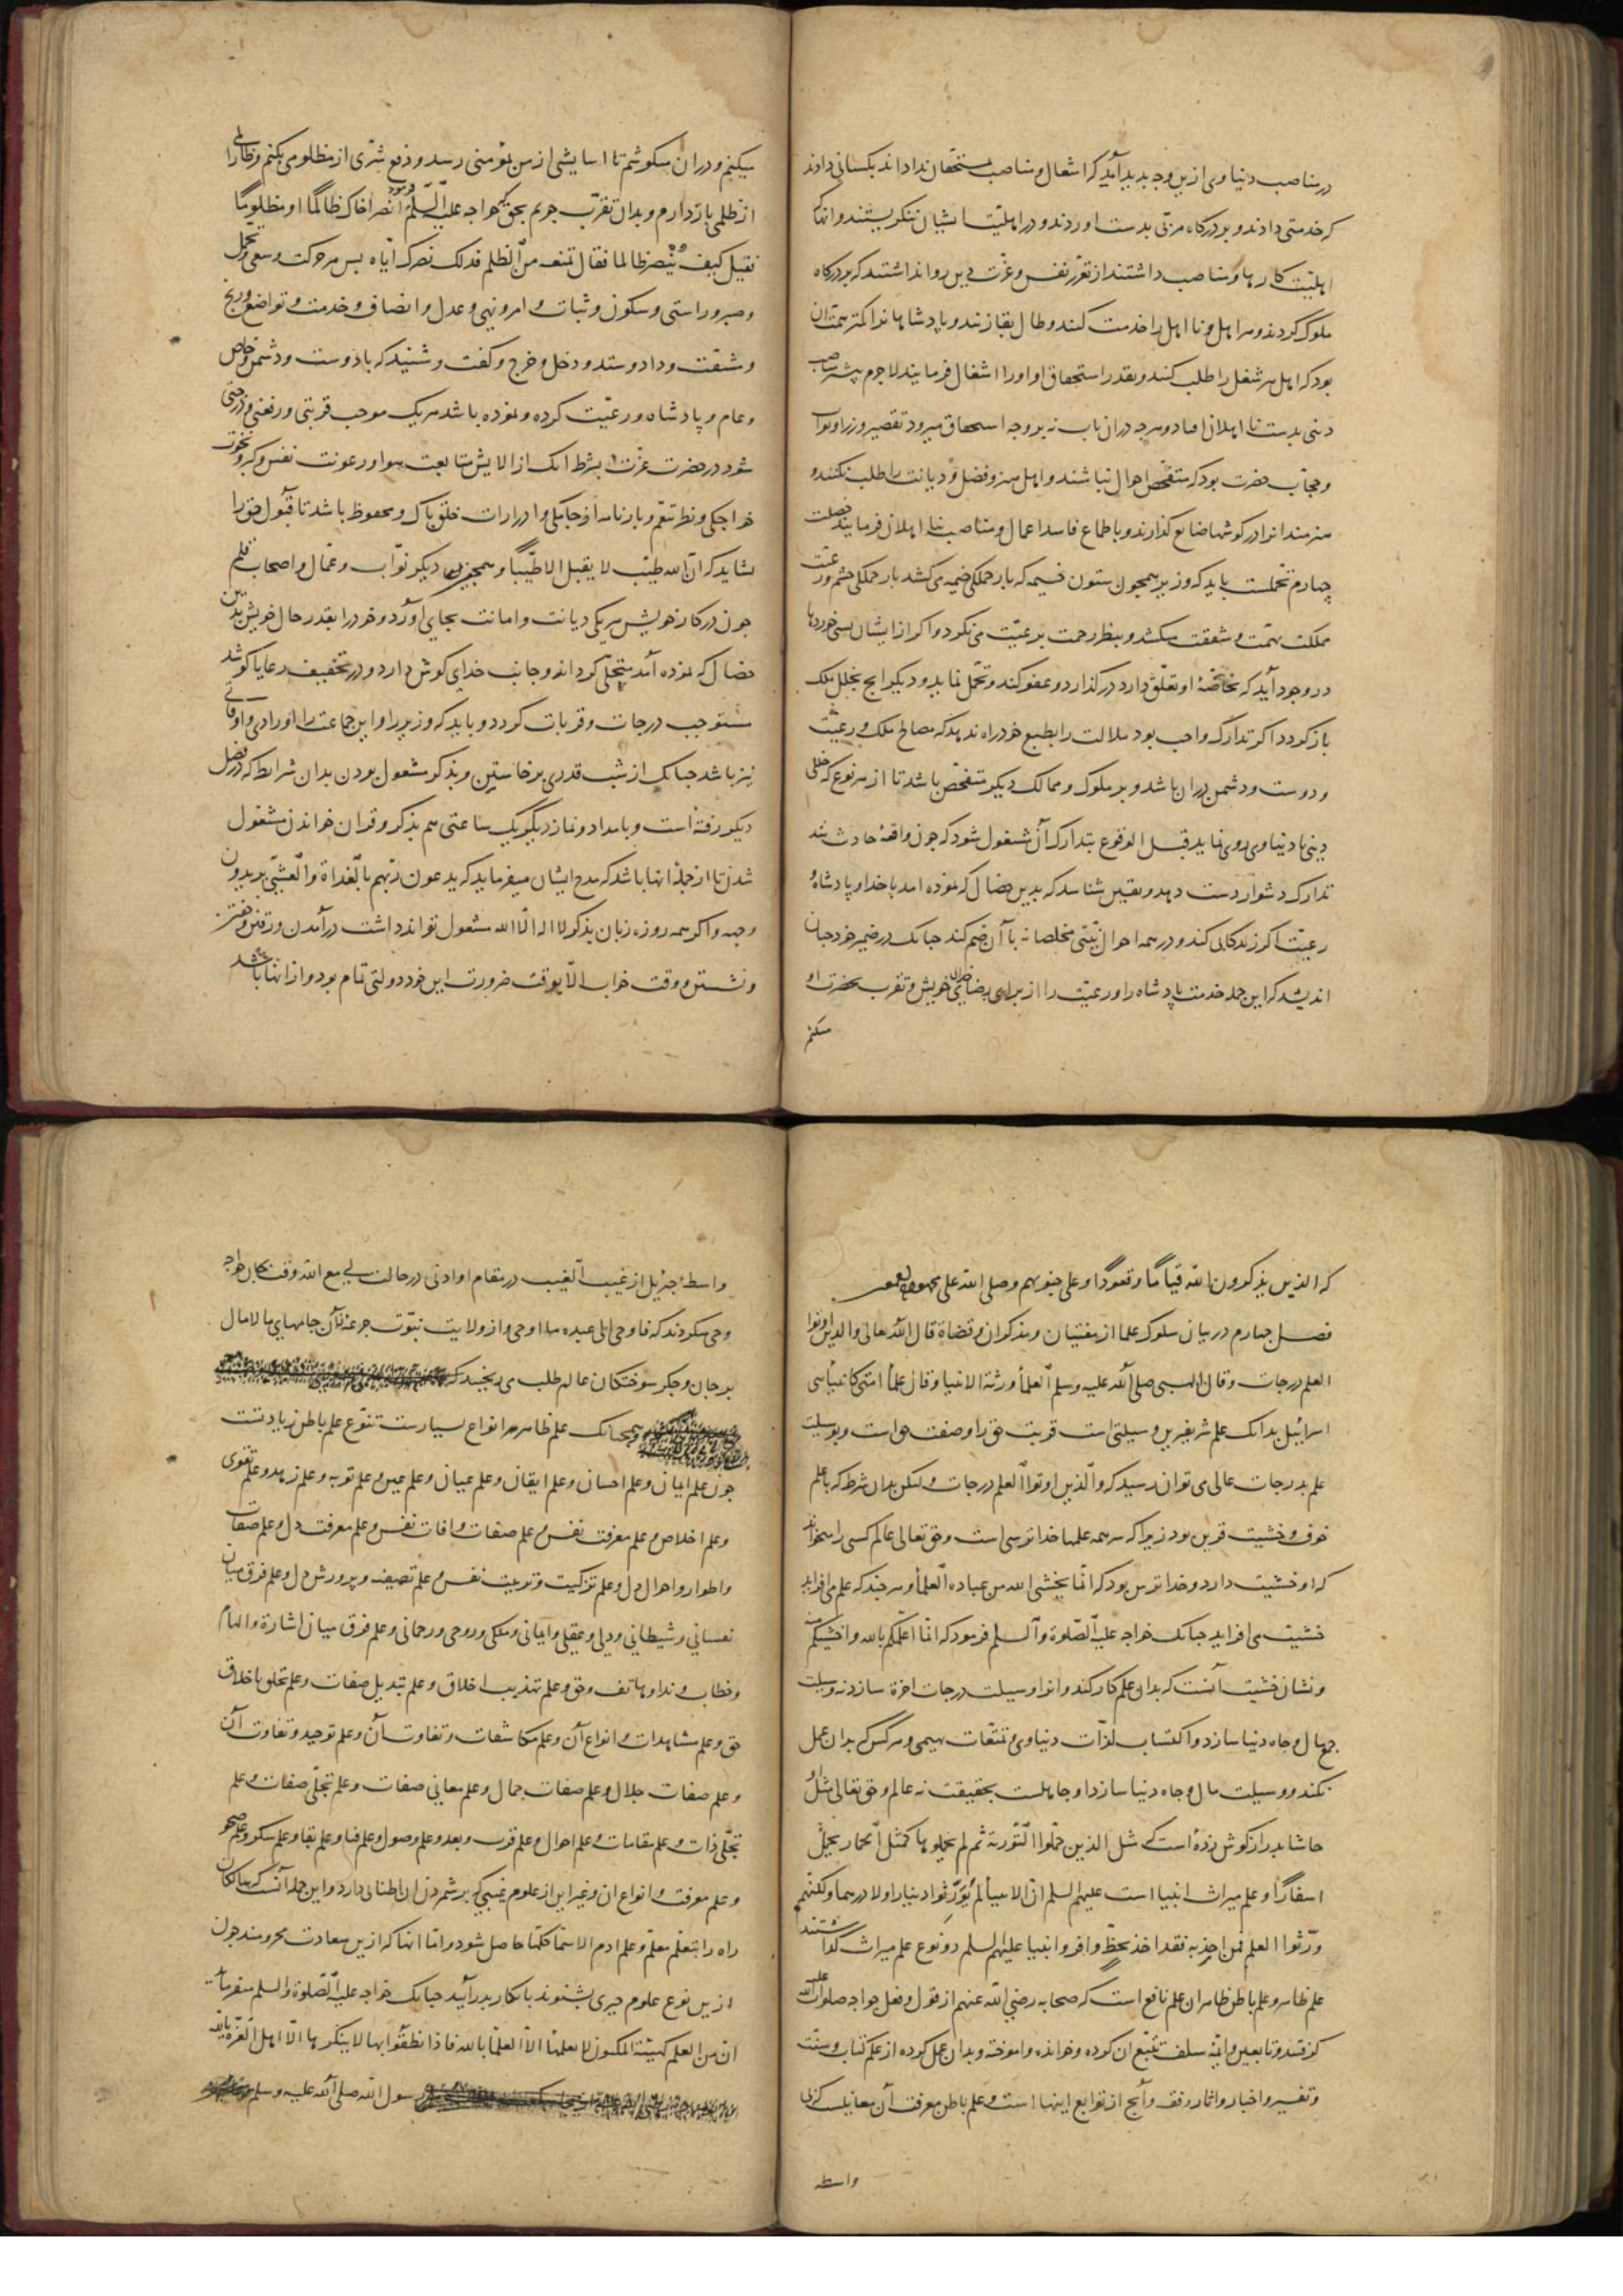 در مناصب دنیاوی ازین وجه پدید آید که اشغال و مناصب بمستحقان نداده‌اند بکسانی دادند
که خدمتی دادند و بر درگاه مربی بدست اوردند و در اهلیت ایشان ننگریستند و انها که
اهلیت کارها و مناصب داشتند از تعزز نفس و عزت دین روا نداشتند که بر درگاه
ملوک گردند و هر اهل و نااهل را خدمت کنند و طال بقا زنند و پادشاهانرا کمتر همت آن
بود که اهل هر شغل را طلب کنند و بقدر استحقاق او اورا اشغال فرمایند لاجرم بیشتر مناصب
دینی بدست نااهلان افتاد و هرچه دران باب نه بر وجه استحقاق میرود تقصیر وزرا و نواب
و حجاب حضرت بود که متفحص احوال نباشند و اهل هنر و فضل و دیانت را طلب نکنند و
هنرمندانرا در کوشها ضایع گذارند و باطماع فاسد اعمال و مناصب بنا اهلان فرمایند خصلت
چهارم تحملست باید که وزیر همچون ستون خیمه که بار جملگی خیمه می کشد بار جملگی حشم و رعیت
مملکت بهمت و شفقت میکشد و بنظر رحمت بر رعیت می نکرد و اگر از ایشان بسی خوردها
در وجود آید که بخاصهٔ او تعلق دارد درگذارد و عفو کند و تحمل نماید و دیکر انچ بخلل ملک
بازگردد اگر تدارک واجب بود ملالت را بطبع خود راه ندهد که مصالح ملک و رعیت
و دوست و دشمن دران باشد و بر ملوک و ممالک دیکر متفحص باشد تا از هر نوع که خللی
دینی یا دنیاوی روی نماید قبل الوقوع بتدارک آن مشغول شود که چون واقعهٔ حادث شد
تدارک دشوار دست دهد و یقین شناسد که بدین خصال که نموده امد با خدا و پادشاه و
رعیت اگر زندکانی کند و در همه احوال نیتی مخلصانه با آن ضم کند چنانک در ضمیر خود چنان
اندیشد که این جمله خدمت پادشاه را و رعیت را از برای رضای خدای خویش و تقرب بحضرت او
میکنم
میکنم و دران میکوشم تا اسایشی از من بمؤمنی رسد و دفع شری از مظلومی بکنم و ظالمی را
از ظلمی بازدارم و بدان تقرب جویم بحق که خواجه علیه السلم فرمود انصر اخاک ظالما او مظلوما
فقیل کیف ینصر ظالما فقال تمنعه من الظلم فذلک نصرک ایاه بس هر حرکت و سعی و تحمل
و صبر و راستی و سکون و ثبات و امر و نهی و عدل و انصاف و خدمت و تواضع و رنج
و مشقت و داد و ستد و دخل و خرج و گفت و شنید که با دوست و دشمن و خاص
و عام و پادشاه و رعیت کرده و نموده باشد هر یک موجب قربتی و رفعتی و درجتی
شود در حضرت عزت بشرط انک از الایش متابعت هوا و رعونت نفس و کبر و نخوت
خواجکی و نظر تنعم و بارنامه او جامکی و ادرارات خلق پاک و محفوظ باشد تا قبول حق را
بشاید که ان الله طیب لا یقبل الا طیبا و همچنین دیکر نواب و عمال و اصحاب قلم
چون در کار خویش هر یکی دیانت و امانت بجای آورد و خود را بقدر حال خویش بدین
خصال که نموده آمد متحلی گرداند و جانب خدای گوش دارد و در تخفیف رعایا کوشد
مستوجب درجات و قربات گردد و باید که وزیر را و این جماعت را اورادی و اوقاتی
نیز باشد چنانک از شب قدری برخاستن و بذکر مشغول بودن بدان شرایط که در فصل
دیکر رفته است و بامداد و نماز دیکر یک ساعتی هم بذکر و قران خواندن مشغول
شدن تا از جملهٔ انها باشد که مدح ایشان میفرماید که یدعون ربهم بالغداة والعشی یریدون
وجهه و اگر همه روزه زبان بذکر لا اله الا الله مشغول تواند داشت در آمدن و رفتن و خفتن
و نشستن و وقت خواب الا بوقت ضرورت این خود دولتی تمام بود و از انها باشد
که الذین یذکرون الله قیاما وقعودا وعلی جنوبهم وصلی الله علی محمد
فصل چهارم در بیان سلوک علما از مفتیان و مذکران و قضاة قال الله تعالی والذین اوتوا
العلم درجات وقال النبی صلی الله علیه وسلم العلما ورثة الانبیا وقال علما امتی کانبیاء بنی
اسرائیل بدانک علم شریفترین وسیلتی است قربت حق را و صفت حق است و بوسیلت
علم بدرجات عالی می توان رسید که والذین اوتوا العلم درجات ولکن بدان شرط که با علم
خوف و خشیت قرین بود زیرا که سر همه علمها خداترسی است و حق تعالی عالم کسی را میخواند
که او خشیت دارد و خداترس بود که انما یخشی الله من عباده العلما و هر چند که علم می افزاید
خشیت می افزاید چنانک خواجه علیه الصلوة والسلم فرمود که انا اعلمکم بالله واخشیکم منه
و نشان خشیت آنست که بدان علم کار کند و انرا وسیلت درجات اخرة سازد نه وسیلت
جمع مال و جاه دنیا سازد و اکتساب لذات دنیاوی و تمتعات بهیمی و هر کس بدان عمل
نکند و وسیلت مال و جاه دنیا سازد او جاهلست بحقیقت نه عالم و حق تعالی مثل او
حاشا بدرازگوش زده است که مثل الذین حملوا التوریة ثم لم یحملوها کمثل الحمار یحمل
اسفارا و علم میراث انبیا است علیهم السلم ان الانبیا لم یورثوا دینارا ولا درهما ولکنهم
ورثوا العلم فمن اخذ به فقد اخذ بحظ وافر و انبیا علیهم السلم دو نوع علم میراث گذاشتند
علم ظاهر و علم باطن ظاهر ان علم نافع است که صحابه رضی الله عنهم از قول و فعل خواجه صلوات الله علیه
گرفتند و تابعین و ائمه سلف تتبع ان کرده و خوانده و اموخته و بدان عمل کرده از علم کتاب و سنت
و تفسیر و اخبار و اثار و فقه و آنچ از توابع اینها است و علم باطن معرفت آن معانیست که بی
واسطه
واسطهٔ جبرئیل از غیب الغیب در مقام او ادنی در حالت لی مع الله وقت بجان خواجه
وحی میکردند که فاوحی الی عبده ما اوحی و از ولایت نبوت جرعه آن جامهای مالامال
بر جان و جگر سوختکان عالم طلب می ریختند که
و همچنانک علم ظاهر را انواع بسیارست تنوع علم باطن زیادتست
چون علم ایمان و علم احسان و علم ایقان و علم عیان و علم عین و علم توبه و علم زهد و علم تقوی
و علم اخلاص و علم معرفت نفس و علم صفات و افات نفس و علم معرفت دل و علم صفات
و اطوار و احوال دل و علم تزکیت و تربیت نفس و علم تصفیه و پرورش دل و علم فرق میان
نفسانی و شیطانی و دلی و عقلی و ایمانی و ملکی و روحی و رحمانی و علم فرق میان اشارة و الهام
و خطاب و ندا و هاتف و حق و علم تهذیب اخلاق و علم تبدیل صفات و علم تخلق باخلاق
حق و علم مشاهدات و انواع آن و علم مکاشفات و تفاوت آن و علم توحید و تفاوت آن
و علم صفات جلال و علم صفات جمال و علم معانی صفات و علم تجلی صفات و علم
تجلی ذات و علم مقامات و علم احوال و علم قرب و بعد و علم وصول و علم فنا و علم بقا و علم سکر و علم صحو
و علم معرفت و انواع ان و غیر این از علوم غیبی که برشمردن ان اطنابی دارد و این جمله آنست که سالکان
راه را بتعلم معلم و علم ادم الاسما کلها حاصل شود و اما انها که ازین سعادت محرومند چون
ازین نوع علوم چیزی بشنوند بانکار بدر آیند چنانک خواجه علیه الصلوة والسلم میفرماید
ان من العلم کهیئة المکنون لا یعلمها الا العلما بالله فاذا نطقوا بها لا ینکرها الا اهل الغرة بالله
رسول الله صلی الله علیه وسلم